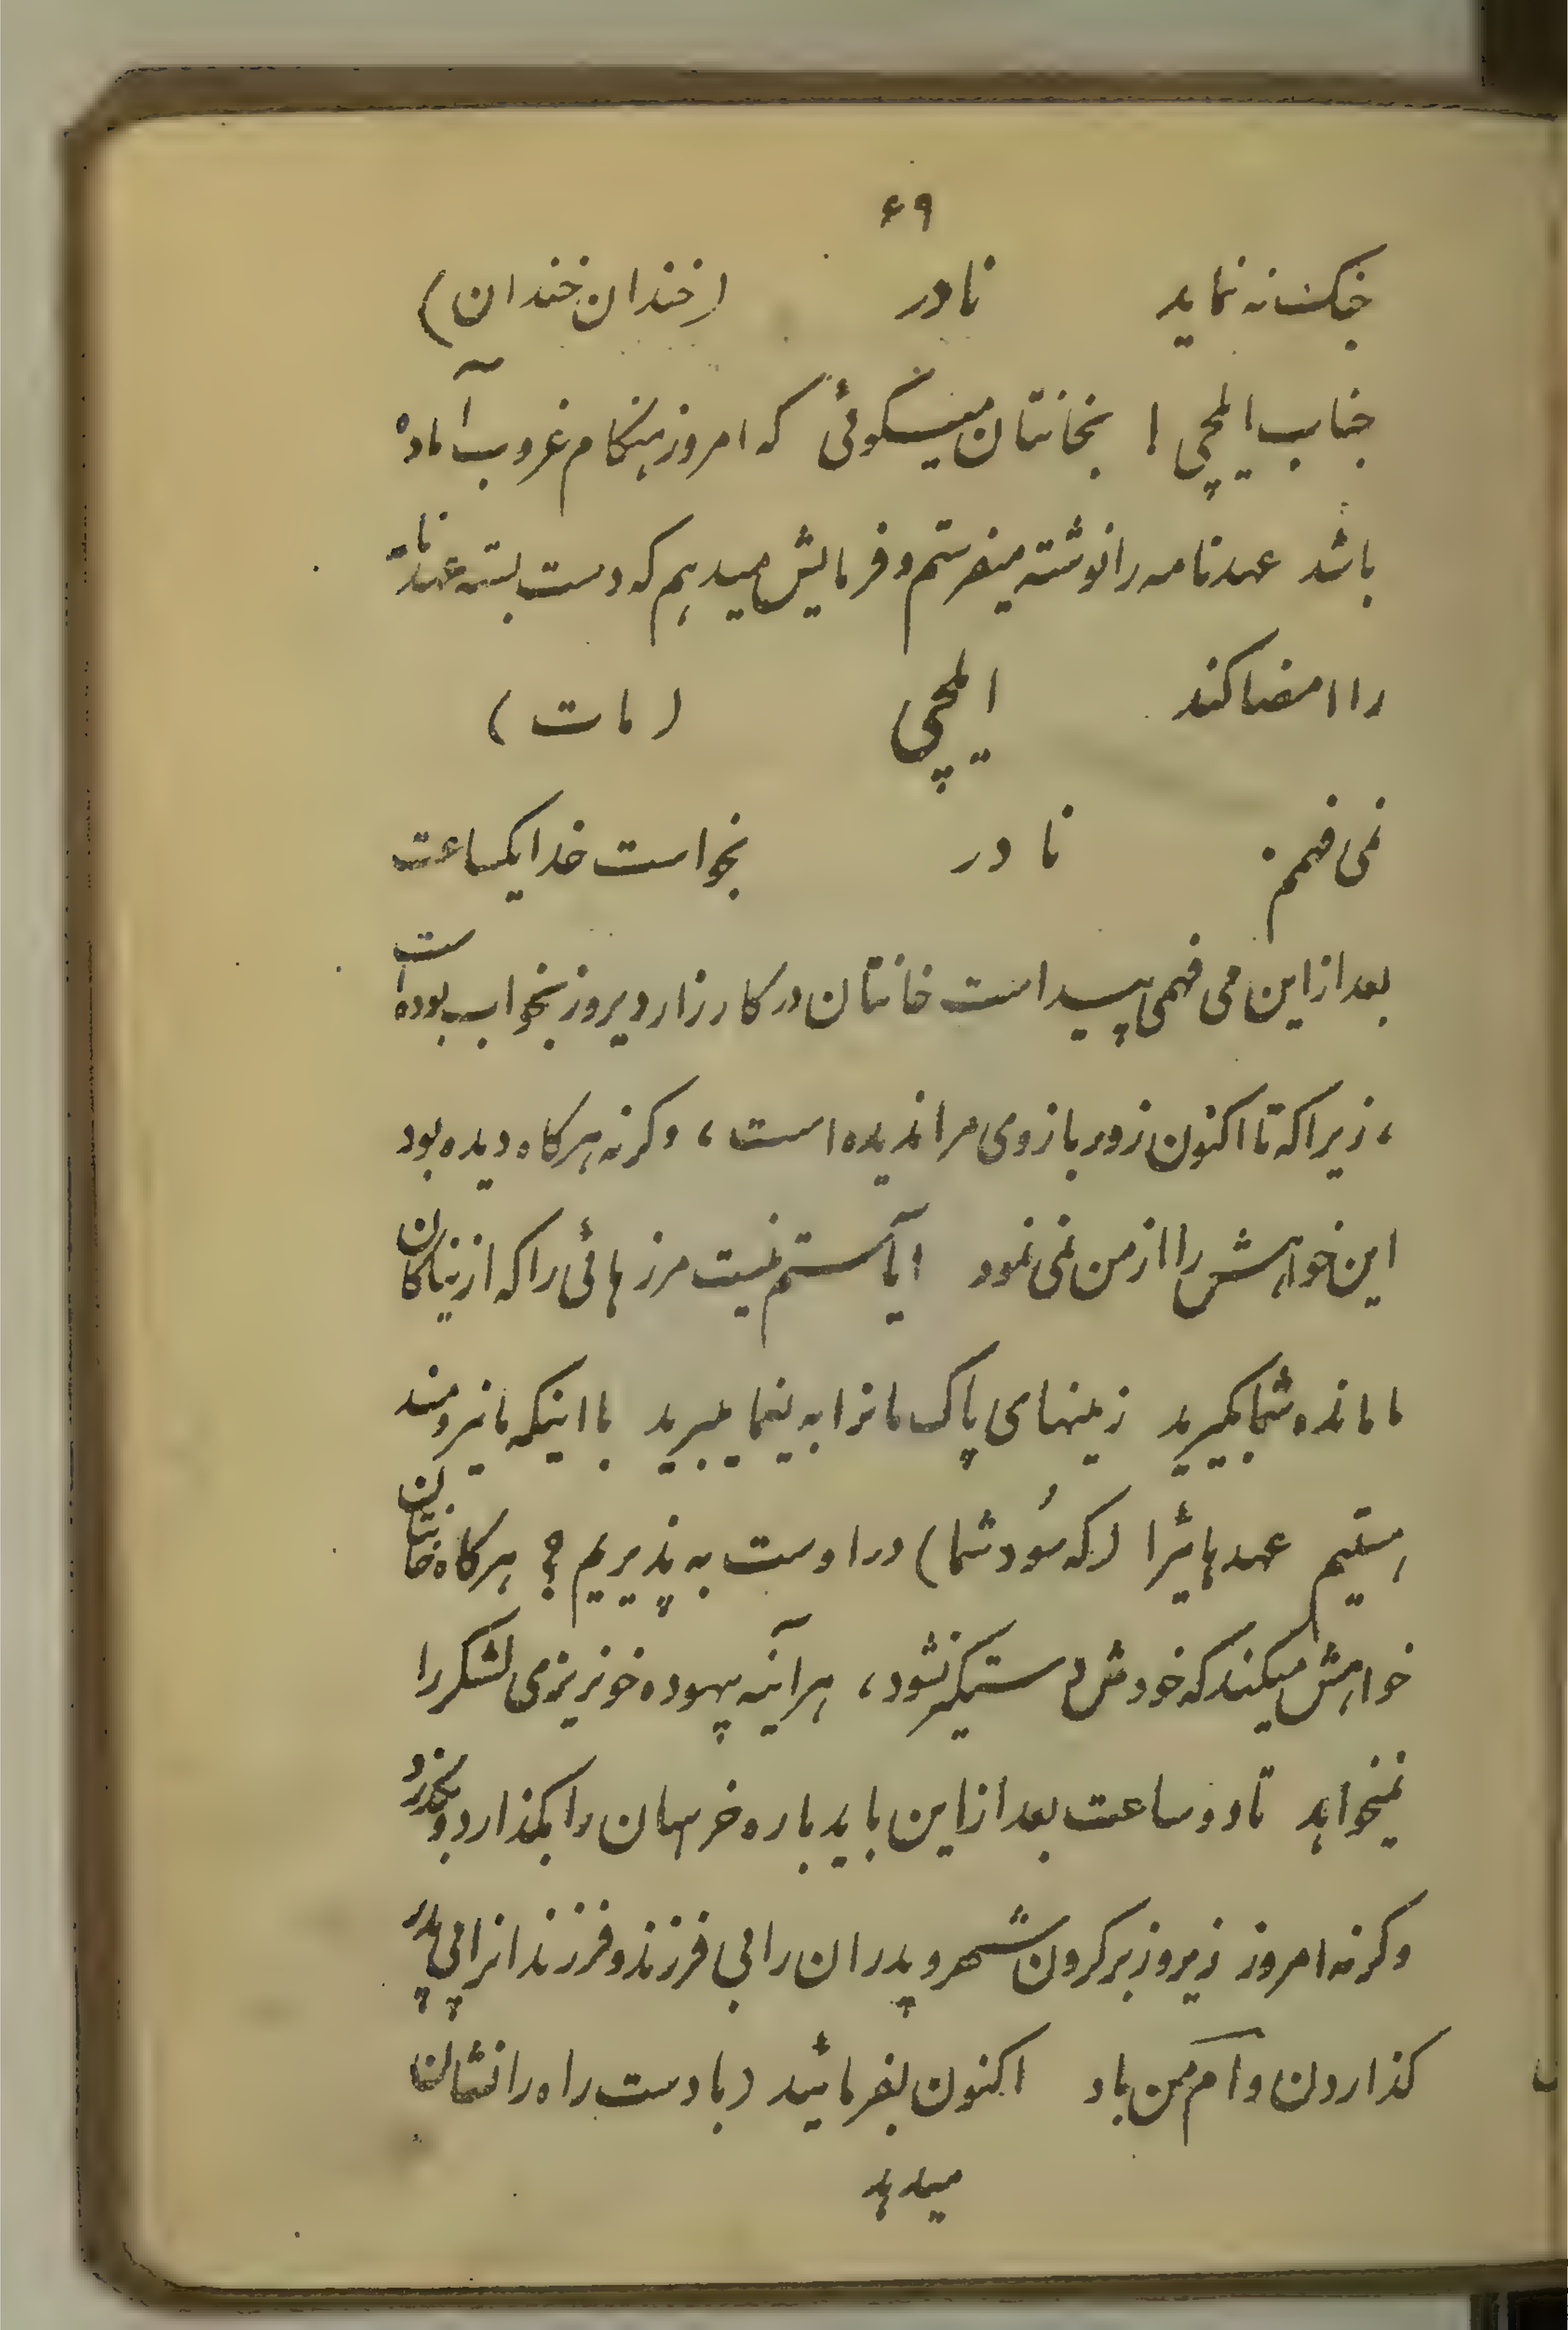 ۶۹
جنک نه نماید نادر (خندان خندان)
جناب ایلچی ! بخانتان میگوئی که امروز هنکام غروب آماده
باشد عهدنامه را نوشته میفرستم و فرمایش میدهم که دست بسته عهدنامه
را امضا کند ایلچی (مات)
نمی فهمم . نادر بخواست خدا یکساعت
بعد از این می فهمی پیداست خانتان در کارزار دیروز بخواب بوده است
، زیرا که تا اکنون زور بازوی مرا ندیده است ، وکرنه هرکاه دیده بود
این خواهش را از من نمی نمود آیا ستم نیست مرزهائی را که از نیاکان
ما مانده شما بگیرید زمینهای پاک مانرا به یغما میبرید با اینکه ما نیرومند
هستیم عهد هائیرا (که سُود شما) در اوست به پذیریم ؟ هرکاه خانتان
خواهش میکند که خودش دستکیر نشود ، هر آینه بیهوده خونریزی لشکر را
نمیخواهد تا دو ساعت بعد از این باید باره خرسان را بکذارد و بگذرد
وکرنه امروز زیر و زبر کردن شهر و پدران را بی فرزند و فرزندانرا بی پدر
کذاردن وآم من باد اکنون بفرمائید (با دست راه را نشان
میدهد